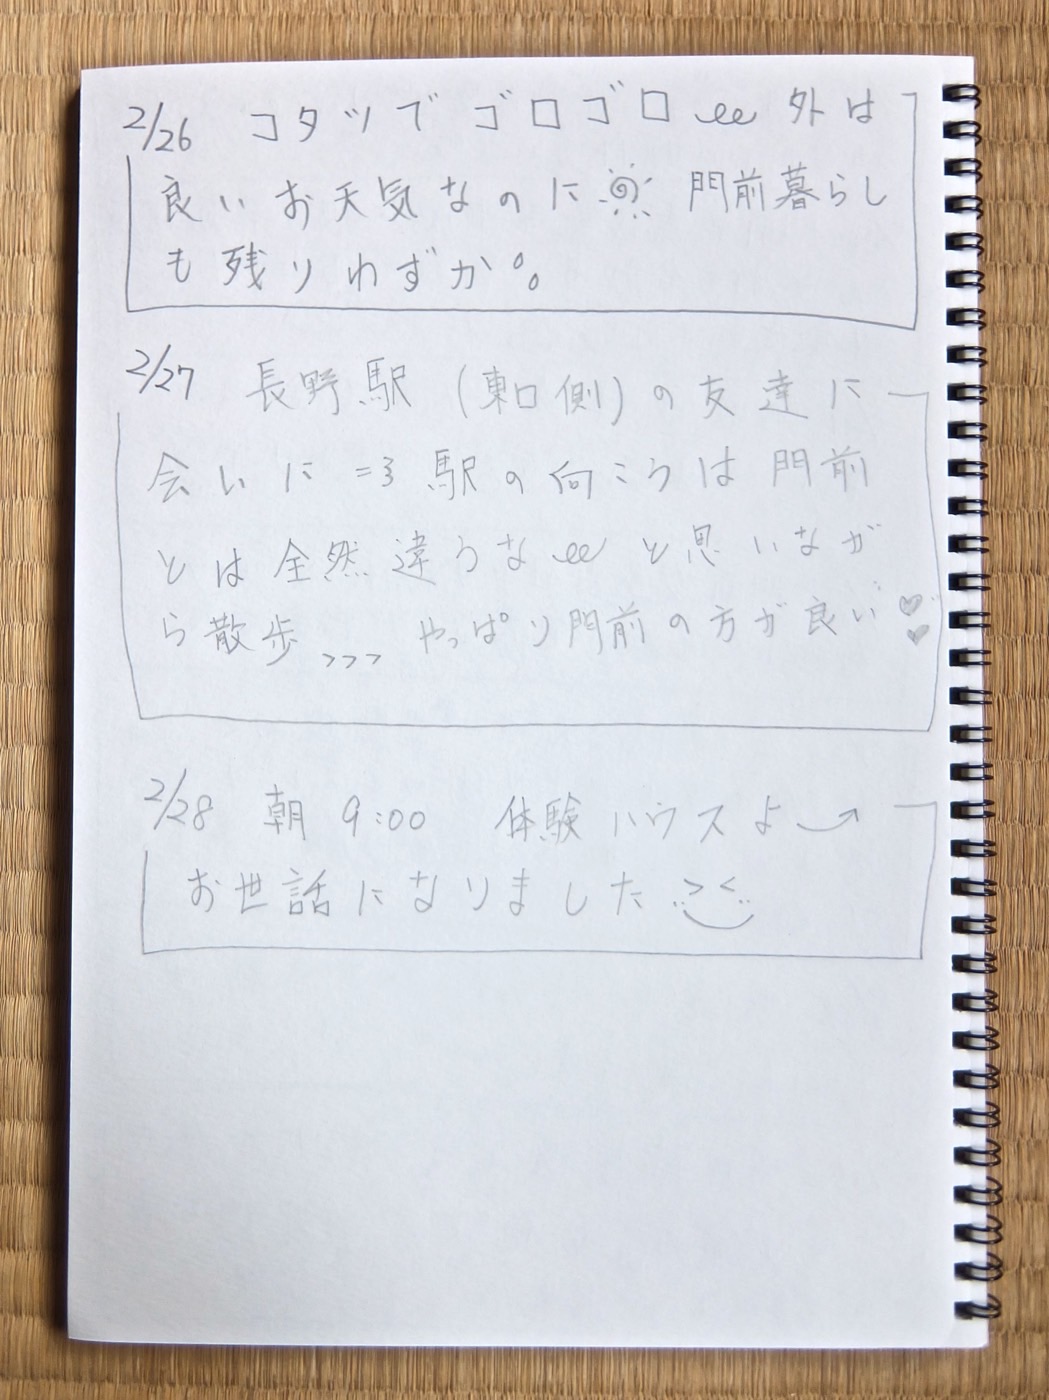 2/26 コタツで ゴロゴロ 外は
良いお天気なのに 門前暮らし
も残りわずか。
2/27 長野駅(東口側)の友達に
会いに =3 駅の向こうは門前
とは全然違うな と思いなが
ら散歩>>> やっぱり門前の方が良い♡♡
2/28 朝9:00 体験ハウスよ
お世話になりました